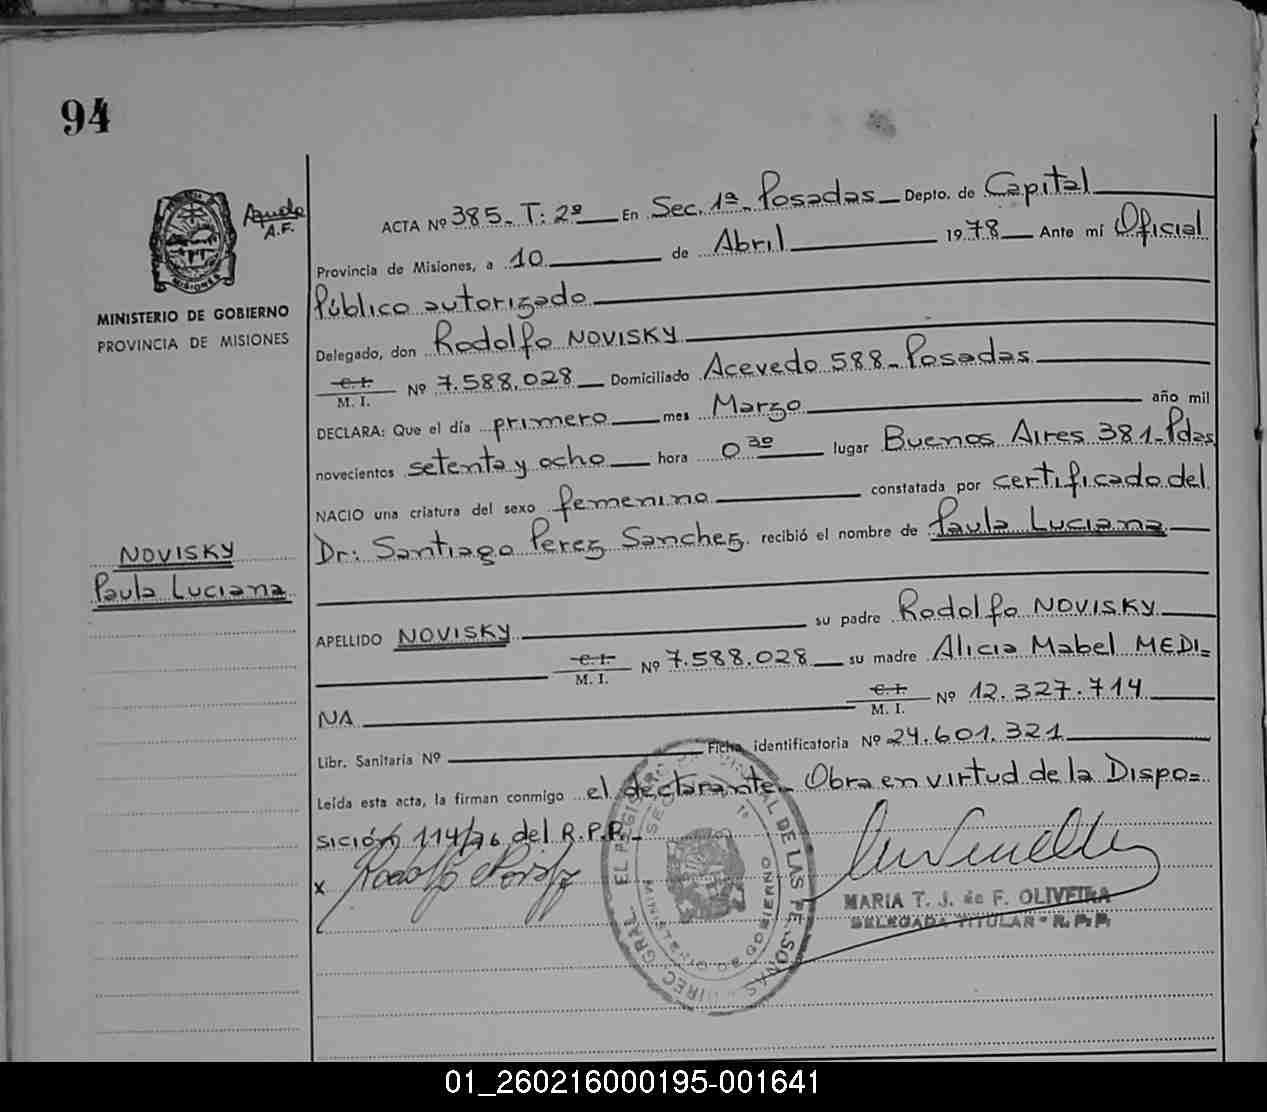 94
A.F.
MINISTERIO DE GOBIERNO
PROVINCIA DE MISIONES
NOVISKY
Paula Luciana
ACTA Nº 385_ T: 2º En Sec. 1ª_ Posadas_ Depto. de Capital
Provincia de Misiones, a 10 de Abril 1978 Ante mí Oficial
Público autorizado
Delegado, don Rodolfo NOVISKY
C. I.
M. I. Nº 7.588.028 Domiciliado Acevedo 588_ Posadas
DECLARA: Que el día primero mes Marzo año mil
novecientos setenta y ocho hora 0 30 lugar Buenos Aires 381_Pdas
NACIO una criatura del sexo femenino constatada por certificado del
Dr: Santiago Perez Sanchez recibió el nombre de Paula Luciana
APELLIDO NOVISKY su padre Rodolfo NOVISKY
C. I.
M. I. Nº 7.588.028 su madre Alicia Mabel MEDI=
NA C. I.
M. I. Nº 12.327.714
Libr. Sanitaria Nº Ficha identificatoria Nº 24.601.321
Leída esta acta, la firman conmigo el declarante_ Obra en virtud de la Dispo=
sición 114/76 del R.P.P._
x Rodolfo Novisky
MARIA T. J. de F. OLIVEIRA
DELEGADA TITULAR - R.P.P.
01_260216000195-001641